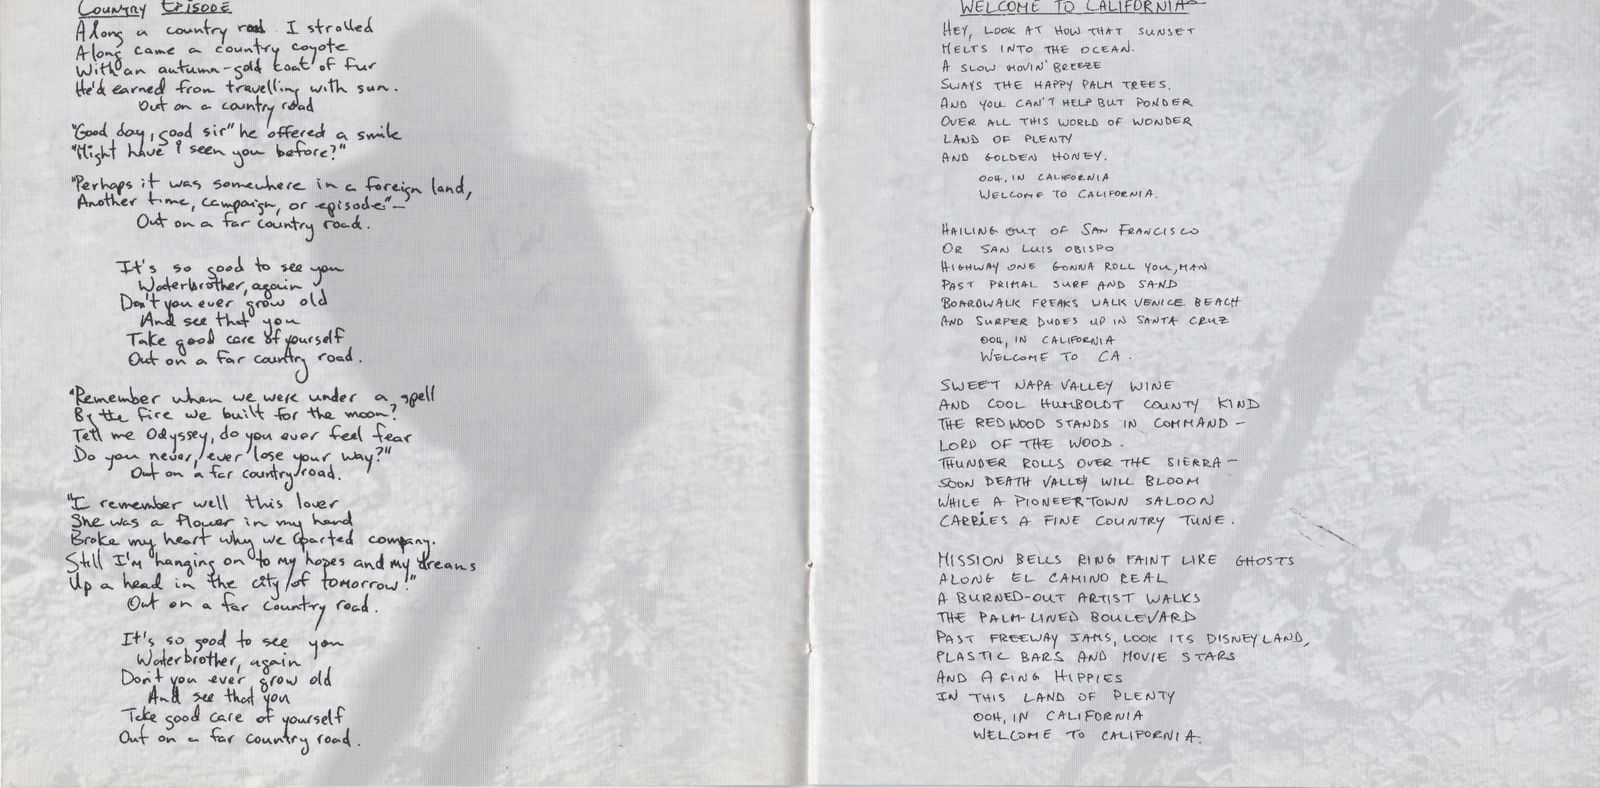 Country Episode
Along a country road I strolled
Along came a country coyote
With an autumn-gold coat of fur
He'd earned from travelling with sun.
Out on a country road
"Good day, good sir" he offered a smile
"Might have I seen you before?"
"Perhaps it was somewhere in a foreign land,
Another time, campaign, or episode"—
Out on a far country road.
It's so good to see you
Waterbrother, again
Don't you ever grow old
And see that you
Take good care of yourself
Out on a far country road.
"Remember when we were under a spell
By the fire we built for the moon?
Tell me Odyssey, do you ever feel fear
Do you never, ever lose your way?"
Out on a far country road.
"I remember well this lover
She was a flower in my hand
Broke my heart why we parted company.
Still I'm hanging on to my hopes and my dreams
Up a head in the city of tomorrow!"
Out on a far country road.
It's so good to see you
Waterbrother, again
Don't you ever grow old
And see that you
Take good care of yourself
Out on a far country road.
WELCOME TO CALIFORNIA
HEY, LOOK AT HOW THAT SUNSET
MELTS INTO THE OCEAN.
A SLOW MOVIN' BREEZE
SWAYS THE HAPPY PALM TREES.
AND YOU CAN'T HELP BUT PONDER
OVER ALL THIS WORLD OF WONDER
LAND OF PLENTY
AND GOLDEN HONEY.
OOH, IN CALIFORNIA
WELCOME TO CALIFORNIA.
HAILING OUT OF SAN FRANCISCO
OR SAN LUIS OBISPO
HIGHWAY ONE GONNA ROLL YOU, MAN
PAST PRIMAL SURF AND SAND
BOARDWALK FREAKS WALK VENICE BEACH
AND SURFER DUDES UP IN SANTA CRUZ
OOH, IN CALIFORNIA
WELCOME TO CA.
SWEET NAPA VALLEY WINE
AND COOL HUMBOLDT COUNTY KIND
THE REDWOOD STANDS IN COMMAND —
LORD OF THE WOOD.
THUNDER ROLLS OVER THE SIERRA —
SOON DEATH VALLEY WILL BLOOM
WHILE A PIONEERTOWN SALOON
CARRIES A FINE COUNTRY TUNE.
MISSION BELLS RING FAINT LIKE GHOSTS
ALONG EL CAMINO REAL
A BURNED-OUT ARTIST WALKS
THE PALM-LINED BOULEVARD
PAST FREEWAY JAMS, LOOK ITS DISNEYLAND,
PLASTIC BARS AND MOVIE STARS
AND AGING HIPPIES
IN THIS LAND OF PLENTY
OOH, IN CALIFORNIA
WELCOME TO CALIFORNIA.